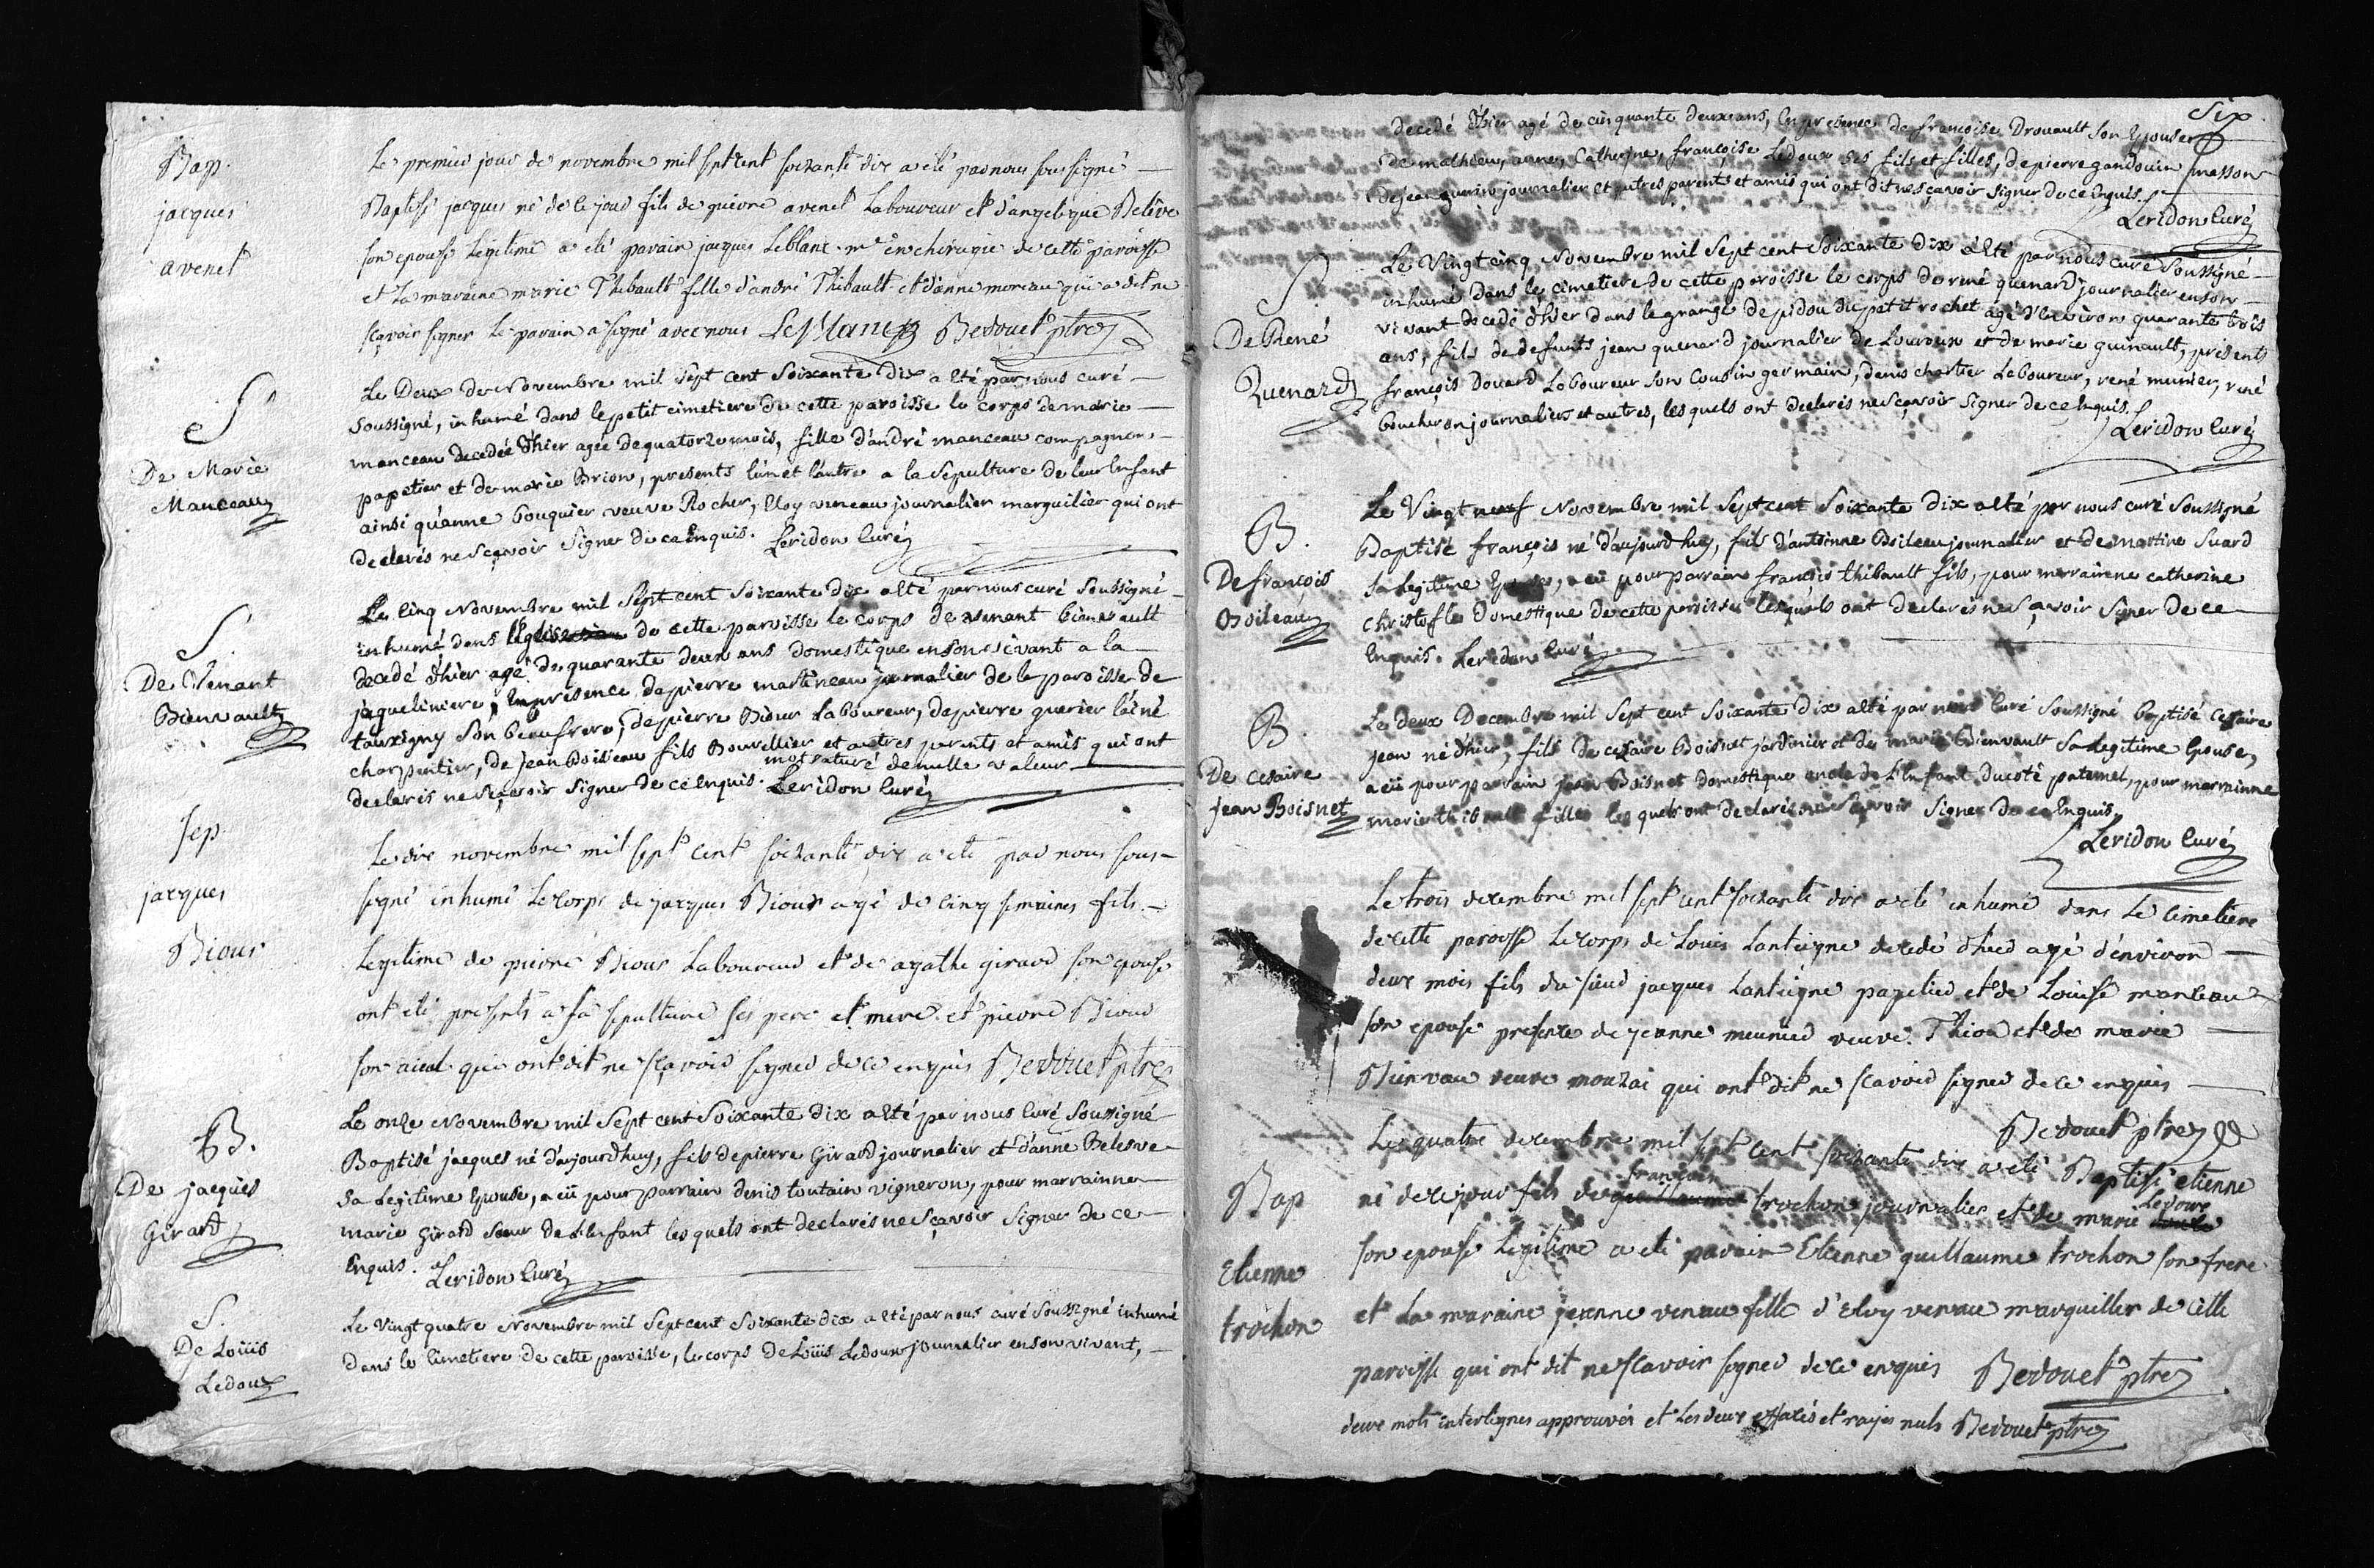 Bap.
jacques
avenet
Le premier jour de novembre mil sept cent soixante dix a eté par nous sous signé
Baptisé jacques né de ce jour fils de pierre avenet Laboureur et d'angelique Beleve
son epouse Legitime a eté parain jacques Leblanc me en chirugie de cette paroisse
et La maraine marie Thibault fille d'andré Thibault et d'anne moreau qui a dit ne
sçavoir signer Le parain a signé avec nous LeBlanc Bedouet ptre
S
De Marie
Manceau
Le Deux de Novembre mil sept cent soixante Dix a Eté par nous curé
soussigné, inhumé dans le petit cimetiere de cette paroisse le corps de marie
manceau decedée d'hier agée de quatorze mois, fille d'andré manceau compagnon
papetier et de marie Brion, presents l'un et l'autre a la sepulture de leur Enfant
ainsi qu'anne bouquier veuve Rocher, Eloy veneau journalier marguilier qui ont
declarés ne sçavoir signer de ce Enquis. Leridon Curé
S
De Venant
Bienvault
Le Cinq Novembre mil sept cent soixante dix a Eté par nous curé soussigné
inhumé dans l'Eglise de cette paroisse le corps de venant bienvault
decedé d'hier agé de quarante deux ans domestique en son vivant a la
jaqueliniere, En presence de pierre martineau journalier de la paroisse de
tauxigny son beaufrere, de pierre Bioux Laboureur, de pierre querier l'ainé
charpentier, de jean Boileau fils Bourellier et autres parents et amis qui ont
declarés ne sçavoir signer de ce Enquis. mot raturé de nulle valeur Leridon Curé
sep.
jacques
Bioux
Le dix novembre mil sept cent soixante dix a eté par nous sous
signé inhumé Le corps de jacques Bioux agé de cinq semaines fils
Legitime de pierre Bioux Laboureur et de agathe giraud son epouse
ont eté presents a sa sepulture ses pere et mere et pierre Bioux
son aieul qui ont dit ne sçavoir signer de ce enquis Bedouet ptre
B.
De jacques
Girard
Le onze Novembre mil sept cent soixante Dix a Eté par nous Curé soussigné
Baptisé jacques né d'aujourd'huy, fils de pierre Girard journalier et d'anne Belesve
sa Legitime Epouse, a eü pour parrain denis toutain vigneron, pour marrainne
marie Girard sœur de L'Enfant les quels ont declarés ne sçavoir signer de ce
Enquis. Leridon Curé
S.
De Loüis
Ledoux
Le Vingt quatre Novembre mil sept cent soixante dix a Eté par nous curé soussigné inhumé
dans le Cimetiere de cette paroisse, le corps de Loüis Ledoux journalier en son vivant,
Six
decedé d'hier agé de cinquante deux ans, En presence de françoise Drouault son Epouse
de mathieu, anne, Catherine, françoise Ledoux ses fils et filles, de pierre gandouin masson
de jean guerin journalier et autres parents et amis qui ont dit ne sçavoir signer de ce Enquis.
Leridon Curé
S.
De René
Quenard
Le Vingt cinq Novembre mil sept cent soixante Dix a Eté par nous curé soussigné
inhumé dans le cimetiere de cette paroisse le corps de rené quenard journalier en son
vivant decedé d'hier dans la grange de pidou du petit rochet agé d'Environ quarante trois
ans, fils de defunts jean quenard journalier de Louroux et de marie guinault, presents
françois Douard Laboureur son Cousin germain, denis chartier Laboureur, rené munier, rené
boucheron journaliers et autres, les quels ont declarés ne sçavoir signer de ce Enquis.
Leridon Curé
B.
De françois
Boileau
Le Vingt neuf Novembre mil sept cent soixante dix a Eté par nous curé soussigné
Baptisé françois né d'aujourd'huy, fils d'antoinne Boileau journalier et de martine suard
sa Legitime Epouse, a eü pour parrain françois thibault fils, pour marrainne catherine
christofle domestique de cette paroisse lesquels ont declarés ne sçavoir signer de ce
Enquis. Leridon Curé
B.
De Cesaire
jean Boisnet
Le deux Decembre mil sept cent soixante dix a Eté par nous Curé soussigné baptisé Cesaire
jean né d'hier, fils de cesaire Boisnet jardinier et de marie Bienvault sa Legitime Epouse,
a eü pour parrain jean Boisnet domestique oncle de L'Enfant du coté paternel, pour marrainne
marie thibault fille les quels ont declarés ne sçavoir signer de ce Enquis.
Leridon Curé
Le trois decembre mil sept cent soixante dix a eté inhumé dans Le cimetiere
de cette paroisse Le corps de Louis Lanteigne decedé d'hier agé d'environ
deux mois fils du sieur jacques Lanteigne papetier et de Louise manceau
son epouse presence de jeanne meunier veuve Thion et de marie
Bienvau veuve mouzai qui ont dit ne scavoir signer de ce enquis
Bedouet ptre
Bap
Etienne
trochon
Le quatre decembre mil sept cent soixante dix a eté Baptisé etienne
né de ce jour fils de guillaume françois trochon journalier et de marie Ledoux
son epouse Legitime a eté parain Etienne guillaume trochon son frere
et La maraine jeanne venau fille d'Eloy venau marguillier de cette
paroisse qui ont dit ne scavoir signer de ce enquis Bedouet ptre
deux mots interlignes approuvés et Les deux effacés et rayés nuls Bedouet ptre